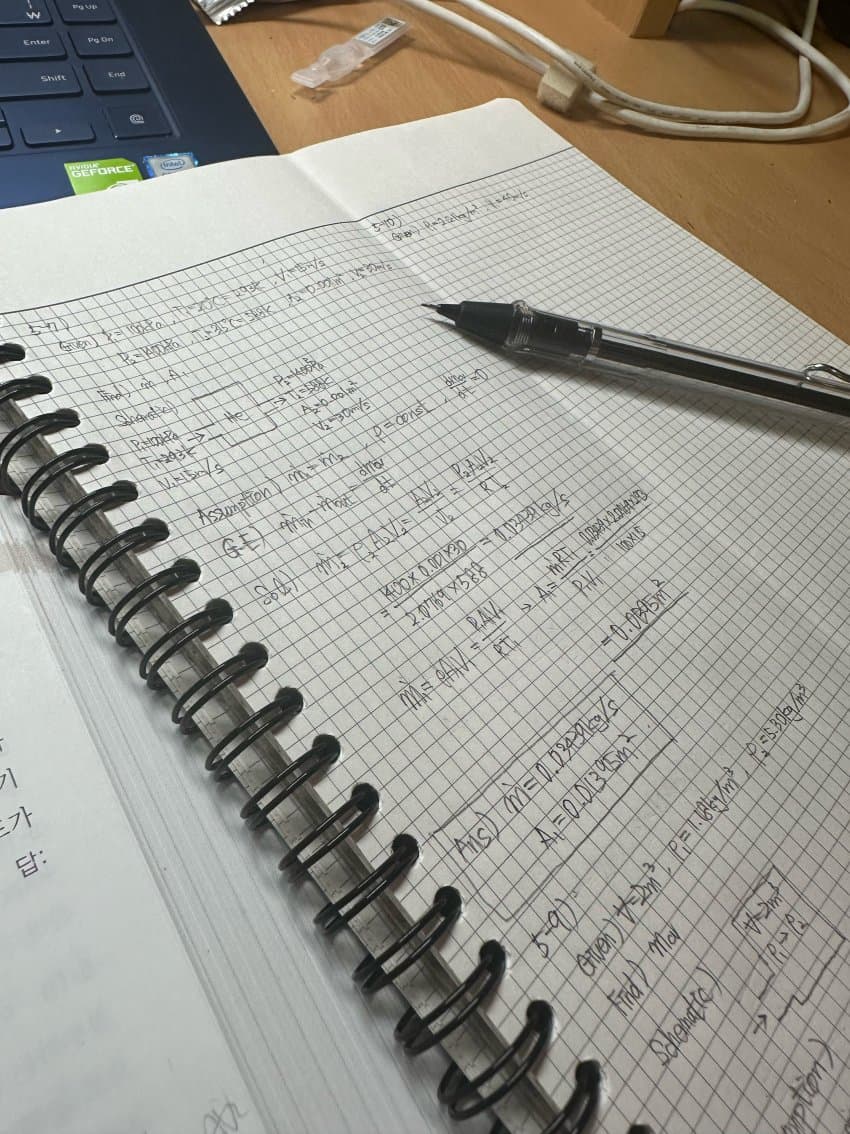 W
Pg Up
Enter
Pg Dn
Shift
End
@
NVIDIA
GEFORCE
intel
5-7)
Given) P₁=100kPa, T₁=20℃=293K, V₁=15m/s
P₂=1400kPa, T₂=315℃=588K, A₂=0.001m², V₂=30m/s
Find) ṁ, A₁
Schematic)
He
P₁=100kPa
T₁=293K
V₁=15m/s
P₂=1400kPa
T₂=588K
A₂=0.001m²
V₂=30m/s
Assumption) ṁ₁=ṁ₂, P=const, dmcv/dt=0
G.E) ṁin-ṁout=dmcv/dt
Sol) ṁ₂=ρ₂A₂V₂=A₂V₂/v₂=P₂A₂V₂/RT₂
=1400×0.001×30/2.0769×588=0.03439kg/s
ṁ₁=ρA₁V₁=P₁A₁V₁/RT₁→A₁=ṁRT₁/P₁V₁=0.03439×2.0769×293/100×15
Ans) ṁ=0.03439kg/s
A₁=0.01395m²
5-9)
Given) V=2m³, ρ₁=1.18kg/m³, ρ₂=5.30kg/m³
Find)
Schematic)
V=2m³
→
5-10)
Given)
기
가
답: